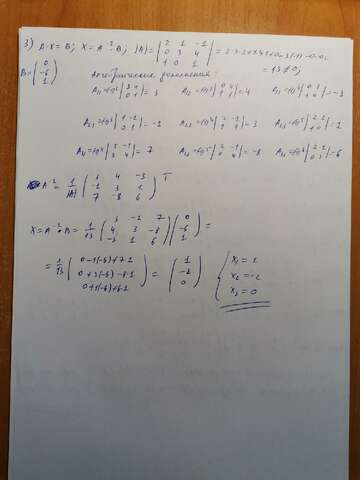 3) A·X = B; X = A⁻¹B; |A| = |2 1 -1; 0 3 4; 1 0 1| = 13 ≠ 0;
B = (0; -6; 1)
Алгебраические дополнения:
A₁₁ = |3 4; 0 1| = 3 A₁₂ = |0 4; 1 1| = 4 A₁₃ = |0 3; 1 0| = -3
A₂₁ = |1 -1; 0 1| = -1 A₂₂ = |2 -1; 1 1| = 3 A₂₃ = |2 1; 1 0| = 1
A₃₁ = |1 -1; 3 4| = 7 A₃₂ = |2 -1; 0 4| = -8 A₃₃ = |2 1; 0 3| = 6
A⁻¹ = 1/|A| (3 4 -3; -1 3 1; 7 -8 6)ᵀ
X = A⁻¹·B = 1/13 (3 -1 7; 4 3 -8; -3 1 6)(0; -6; 1) =
= 1/13 (0-1(-6)+7·1; 0+3(-6)-8·1; 0+1(-6)+6·1) = (1; -2; 0)
{x₁ = 1
x₂ = -2
x₃ = 0